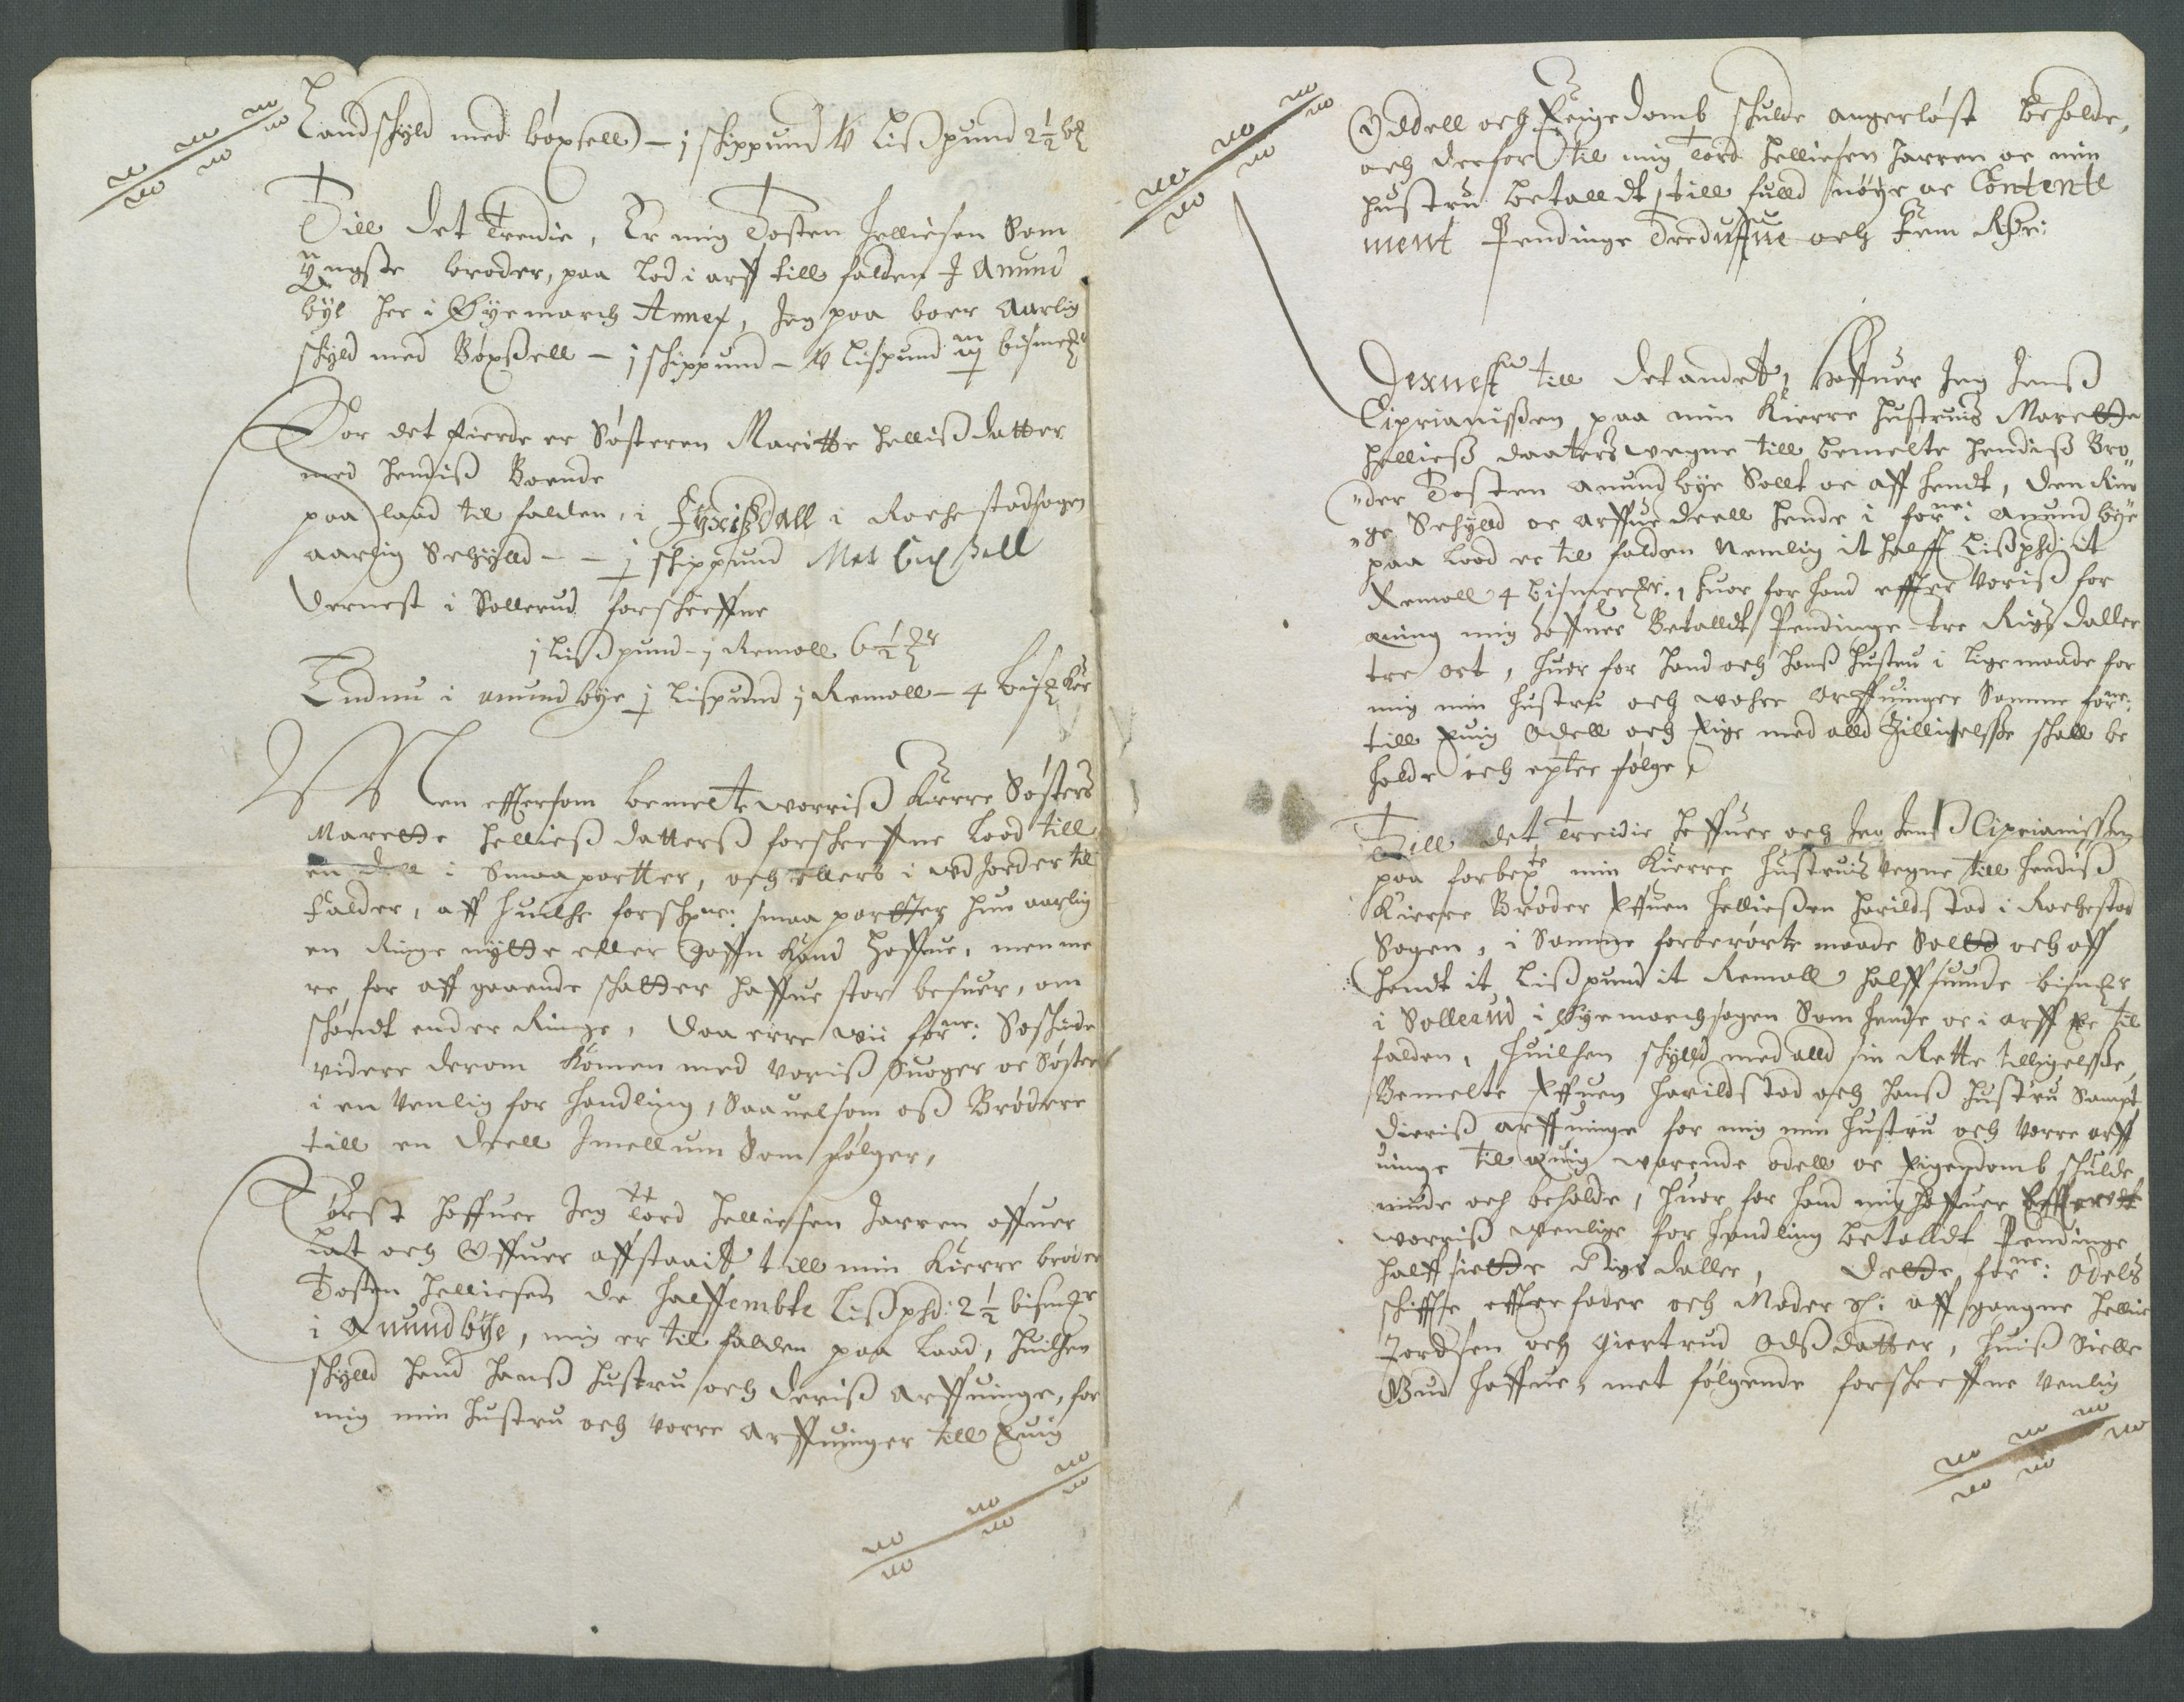 Landschyld med böxsell – j schippund ꝟ Lißpund 2½ bꝫ
Till det Tredie, Er mig Tosten Helliesen Som
Yngste broder, paa Lod i arff till falden J Anund
bye her i Øyemarch Annex, Jeg paa boer Aarlig
schyld med Böxßell – j schippund – ꝟ Lispund iij bismer
For det fierde er Söstren Maritte Helliß datter
med hendiß Boende
paa laad til falden, i i Rochestadsogen
aarlig Schylld – – j schippund Met böxßell
dernest i Sollerud forschreffne
j Lißpund – j Remoll 6½
Endnu i anund bye j Lispund j Remoll – 4 bis
Men effterson bemelte worriß Kierre Sösters
Marette Helließ datterß forschreffne Lood till
en deell i Smaa partter, och ellers i udjorder til
falder, aff huilche forschne: smaa partter hun aarlig
en Ringe nytte eller gaffn kand haffue, men me
re for aff gaaende schatter haffue stor besuer, om
schöndt end er Ringe, daa ere wii forne: Söschinde
videre derom komen med voriß Suoger oc Söster
i en venlig for handling, Saauelsom oß Brödere
till en deell Jmellum Som fölger,
Först haffuer Jeg Tord Helliesen Jarren offuer
lat och Offuer affstaaitt till min Kierre broder
Tosten Helliesen de halffembte Lißphd: 2½ bismer
i Anundbye, mig er til falden paa Laad, huilchen
schylld hand hanß hustru och deriß arffuinge, for
mig min hustru och vorre arffuinger till Euig
Oddell och Eigedomb schulde angerlöst beholde,
och derfor til mig Tord Helliesen Jarren oc min
hustru betalldt till fulld nöye oc Contente
ment Pendinge Treduffue och Fem Rdr:
Dernest till det andet, Haffuer Jeg Jenß
Ciprianußen paa min Kierre hustruis Marette
Helließ daaters wegne till bemelte hendiß Bro„
„der Tosten Anundbye Sollt oc aff hendt, den Rin
„ge Schylld oc arffuedeell hende i forne: anund bye
paa Lood er til falden Nemlig it halff Lißphd: it
Remoll 4 bismer, huor for hand effter Voriß for
ening mig haffuer Betalldt Pendinge – tre Rigs daller
tre ort, huor for hand och hanß hustru i lige maade for
mig min hustru och wohre arffuinger Samme forne:
till Euig Odell och Eige med alld Tilligelsse schall be
holde och epter fölge
Till det Tredie haffuer och Jeg Jenß Ciprianissen
paa min Kierre hustruis vegne till hendiß
Kierre Broder Effuen Helließen Harildstad i Rochestad
Sogen, i Samme forberörte maade Solld och aff
hendt it Lißpund it Remoll halffsiuende bismer
i Sollerud i Øyemarchsogen Som hende oc i arff er til
falden, huilchen schylld med alld sin Rette tilligelsße
Bemelte Effuen Harildstad och hanß hustru Sampt
dieriß arffuinge for mig min hustru och vorre arff
uinge til euig warende odell oc Eigendomb schulde
niude och beholde, huor for hand mig haffuer Effter dt
worriß wenlige for handling betalldt Pendinge
halff siette Rigsdaller, dette forne: Odels
schiffte effter fader och Moder Sl: aff gangne Hellie
Tordsen och Giertrud Odßdatter, huiß Sielle
Gud haffue, met fölgende forschreffne venlig